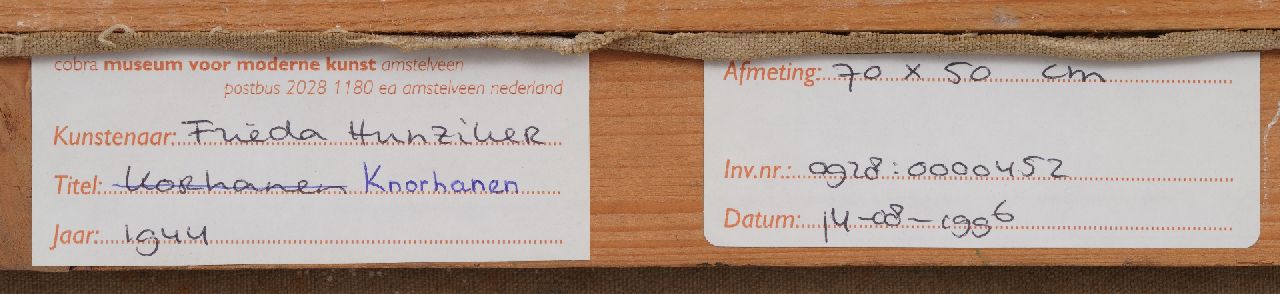 cobra museum voor moderne kunst amstelveen
postbus 2028 1180 ea amstelveen nederland
Kunstenaar: Frieda Hunziker
Titel: Korhanen Knorhanen
Jaar: 1944
Afmeting: 70 x 50 cm
Inv.nr.: 0928:0000452
Datum: 14-08-1996